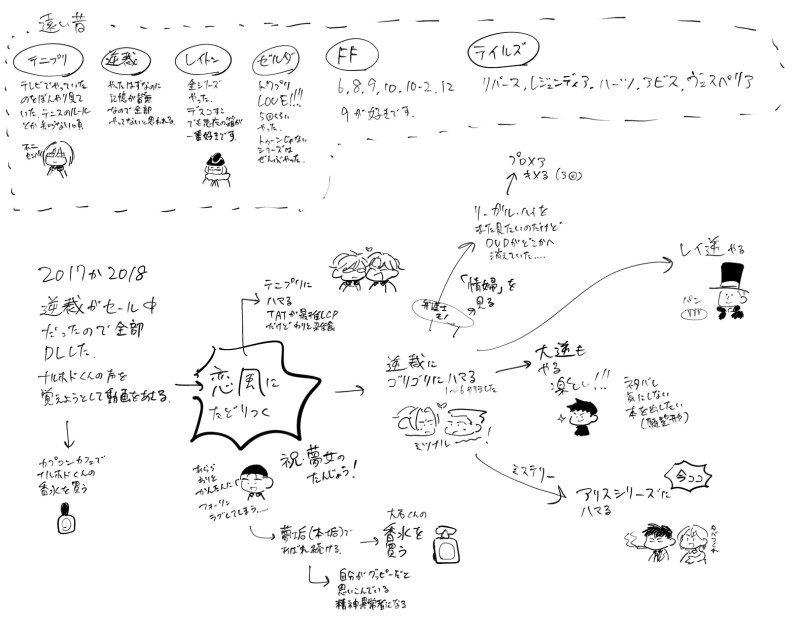 遠い昔
テニプリ
テレビでやっていた
のをぼんやり見て
いた。テニスのルール
とか知らない頃
不二
センパイ
逆裁
やったはずなのに
記憶が皆無
なので全部
やってないと思われる。
レイトン
全シリーズ
やった。
デスコすこ
でも悪魔の箱が
一番好きです。
ゼルダ
トワプリ
LOVE!!!
5回くらい
やった。
トゥーンじゃない
シリーズは
ぜんぶやった。
FF
6,8,9,10,10-2,12
9が好きです。
テイルズ
リバース,レジェンディア,ハーツ,アビス,ヴェスペリア
2017か2018
逆裁がセール中
だったので全部
DLした。
ナルホドくんの声を
覚えようとして動画をあさる。
カプコンカフェで
ナルホドくんの
香水を買う
恋風に
たどりつく
テニプリに
ハマる
TAT が最推しCP
だけどわりと雑食
祝・夢女の
たんじょう!
あらら
わりと
かんたんに
フォーリン
ラブしてしまう……
夢垢(本垢)で
あばれ続ける。
大石くんの
香水を
買う
自分がグッピーだと
思いこんでいる
精神異常者になる
逆裁に
ゴリゴリにハマる
1〜6やりました
ミツナル
弁護士
モノ
「情婦」を
見る
リーガル・ハイを
また見たいのだけど
DVDがどこかへ
消えていた……
プロメア
キメる(3回)
レイ逆 やる
パン
大逆も
やる
楽しい!!!
ネタバレ
気にしない
本を出したい
(願望形)
ミステリー
アリスシリーズに
ハマる
今ココ